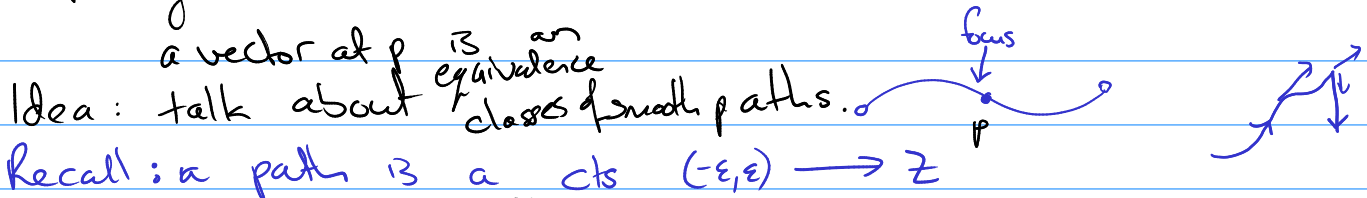 a vector at p is an
equivalence
Idea: talk about classes of smooth paths.
focus
p
Recall: a path is a cts (-ε,ε) → Z